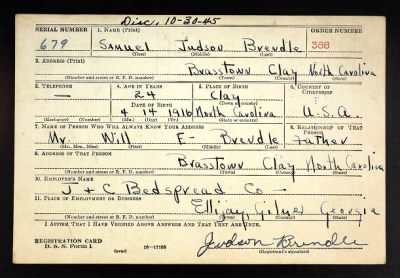 Disc. 10-30-45
SERIAL NUMBER 1. NAME (Print) ORDER NUMBER
679 Samuel Judson Brendle 388
(First) (Middle) (Last)
2. ADDRESS (Print)
Brasstown Clay North Carolina
(Number and street or R. F. D. number) (Town) (County) (State)
3. TELEPHONE 4. AGE IN YEARS 5. PLACE OF BIRTH 6. COUNTRY OF CITIZENSHIP
— 24 Clay
(Town or county)
DATE OF BIRTH
4 14 1916 North Carolina U.S.A.
(Exchange) (Number) (Mo.) (Day) (Yr.) (State or country)
7. NAME OF PERSON WHO WILL ALWAYS KNOW YOUR ADDRESS 8. RELATIONSHIP OF THAT PERSON
Mr. Will F- Brendle Father
(Mr., Mrs., Miss) (First) (Middle) (Last)
9. ADDRESS OF THAT PERSON
Brasstown Clay North Carolina
(Number and street or R. F. D. number) (Town) (County) (State)
10. EMPLOYER'S NAME
J + C Bedspread Co -
11. PLACE OF EMPLOYMENT OR BUSINESS
Ellijay Gilmer Georgia
(Number and street or R. F. D. number) (Town) (County) (State)
I AFFIRM THAT I HAVE VERIFIED ABOVE ANSWERS AND THAT THEY ARE TRUE.
REGISTRATION CARD
D. S. S. Form 1 (over) 16-17105 Judson Brendle
(Registrant's signature)